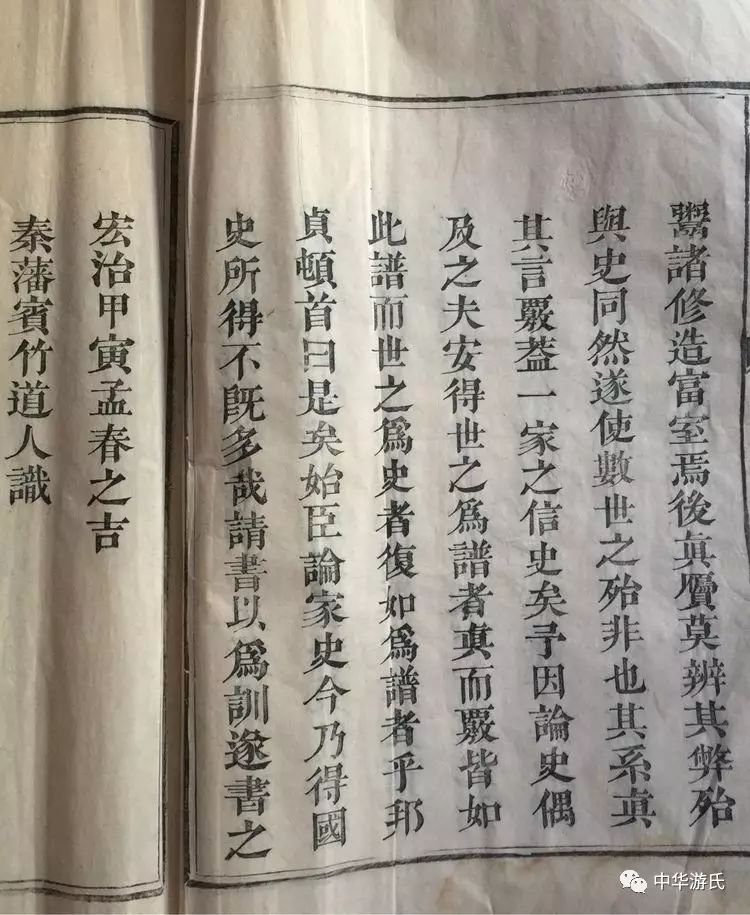 鬻諸修造富室焉後眞贋莫辨其弊殆
與史同然遂使數世之殆非也其系眞
其言覈蓋一家之信史矣予因論史偶
及之夫安得世之爲譜者眞而覈皆如
此譜而世之爲史者復如爲譜者乎邦
貞頓首曰是矣始臣論家史今乃得國
史所得不旣多哉請書以爲訓遂書之
宏治甲寅孟春之吉
秦藩賓竹道人識
中华游氏